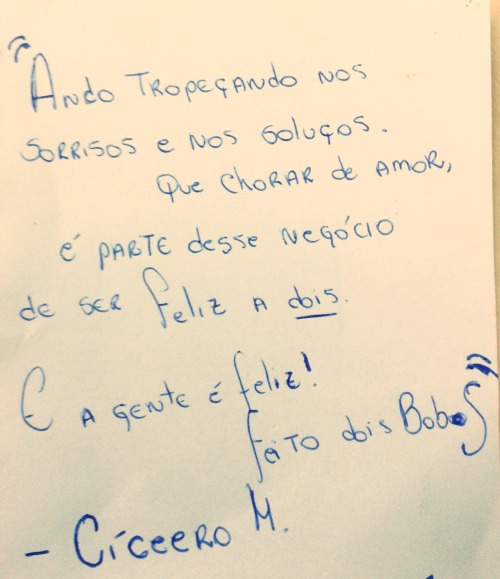 "Ando tropeçando nos
sorrisos e nos soluços.
Que chorar de amor,
é parte desse negócio
de ser feliz a dois.
E a gente é feliz!
Feito dois Bobos"
- Cíceero M.